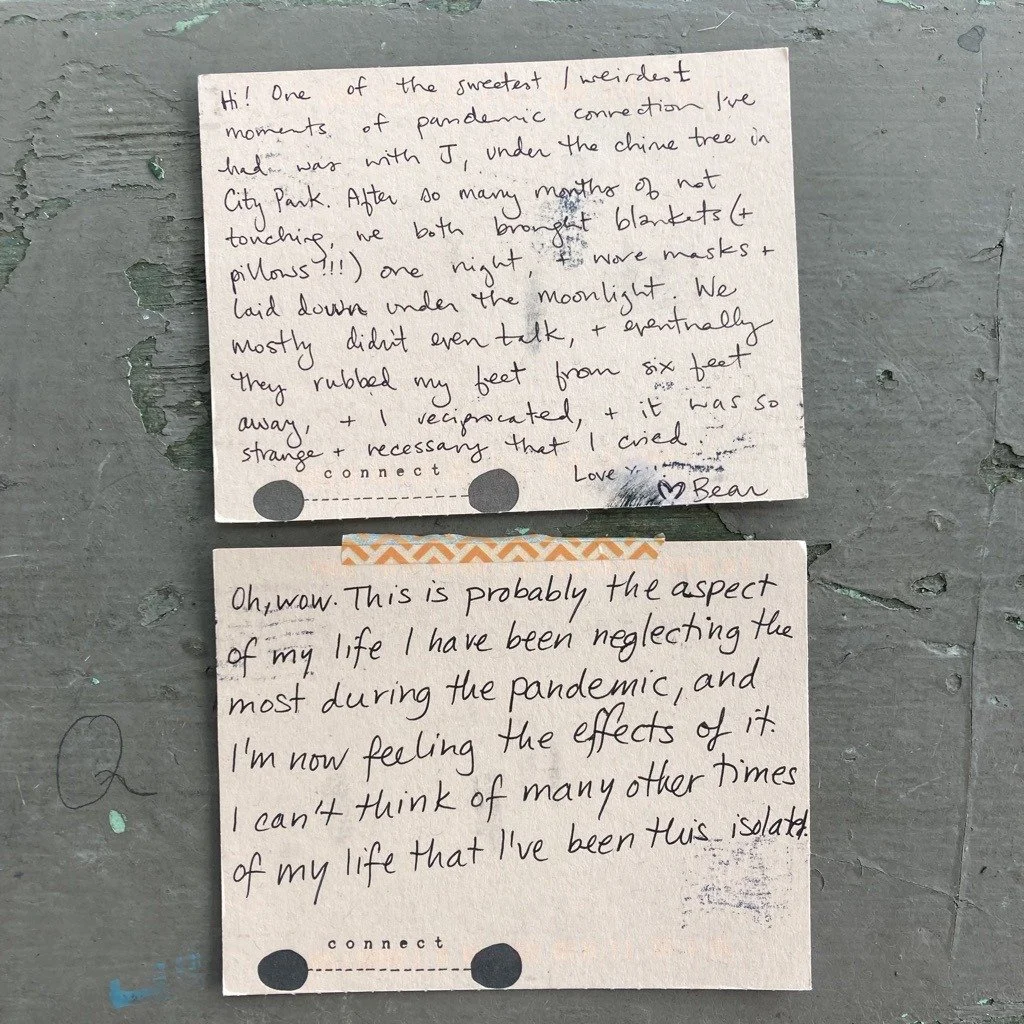 Hi! One of the sweetest / weirdest
moments of pandemic connection I've
had was with J, under the chime tree in
City Park. After so many months of not
touching, we both brought blankets (+
pillows!!!) one night, + wore masks +
laid down under the moonlight. We
mostly didn't even talk, + eventually
they rubbed my feet from six feet
away, + I reciprocated, + it was so
strange + necessary that I cried.
connect
Love
♡ Bear
Oh, wow. This is probably the aspect
of my life I have been neglecting the
most during the pandemic, and
I'm now feeling the effects of it.
I can't think of many other times
of my life that I've been this isolated.
connect